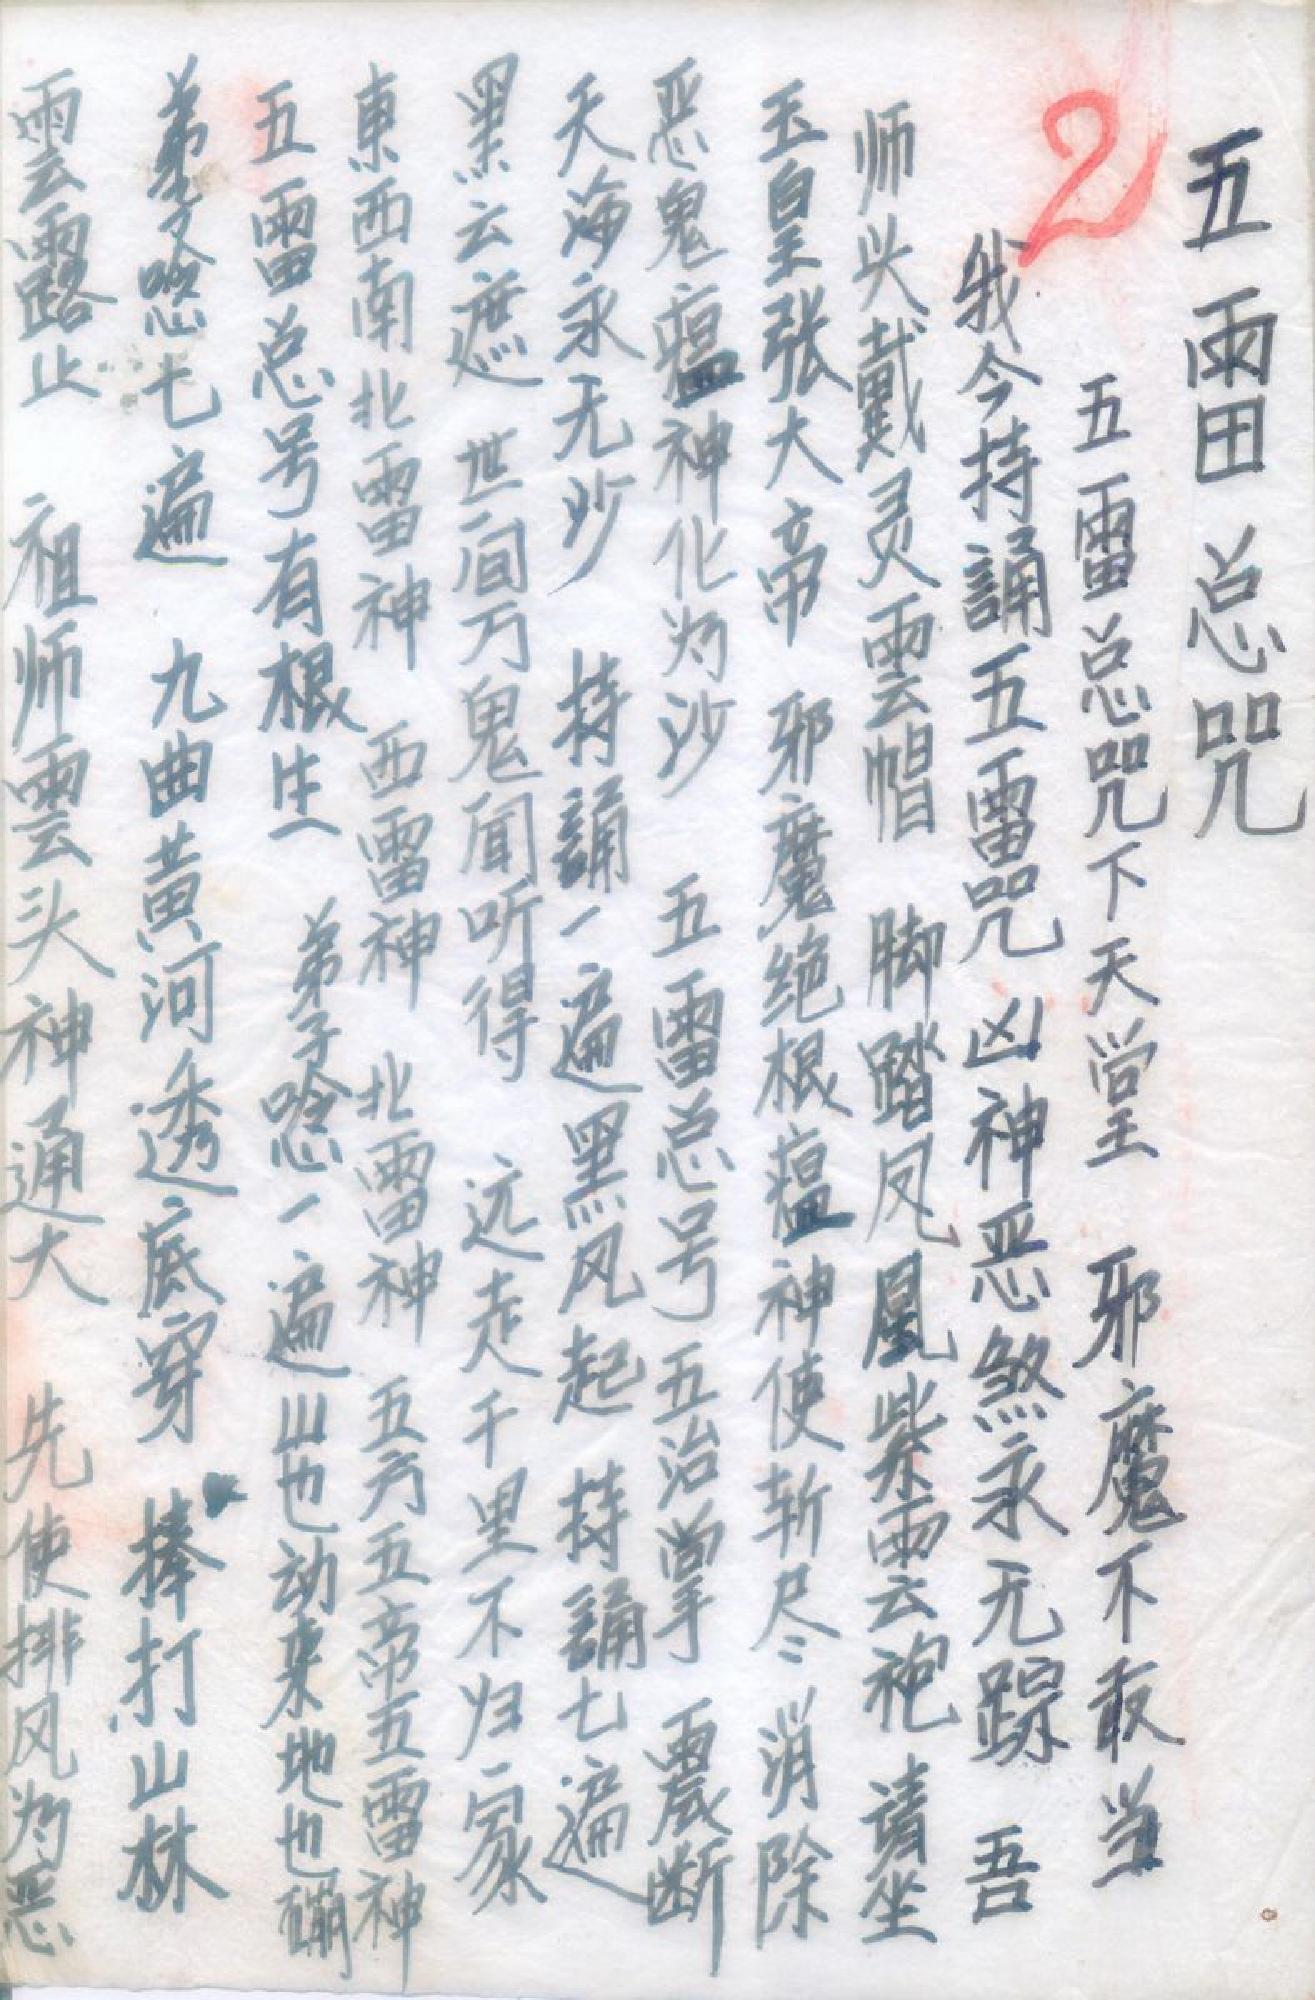 五雷总咒
2
五雷总咒下天堂 邪魔不敢当
我今持誦五雷咒 凶神恶煞永无踪 吾
师头戴灵雲帽 脚踏凤凰紫雲袍 请坐
玉皇张大帝 邪魔绝根瘟神使斩尽 消除
恶鬼瘟神化为沙 五雷总号五治掌 震断
天海永无沙 持誦一遍黑风起 持誦七遍
黑云遮 世间万鬼闻听得 远走千里不归家
東西南北雷神 西雷神 北雷神 五方五帝五雷神
五雷总号有根生 弟子唸一遍山也动来地也崩
弟子唸七遍 九曲黄河透底穿 捧打山林
雲露止 祖师雲头神通大 先使排风为恶